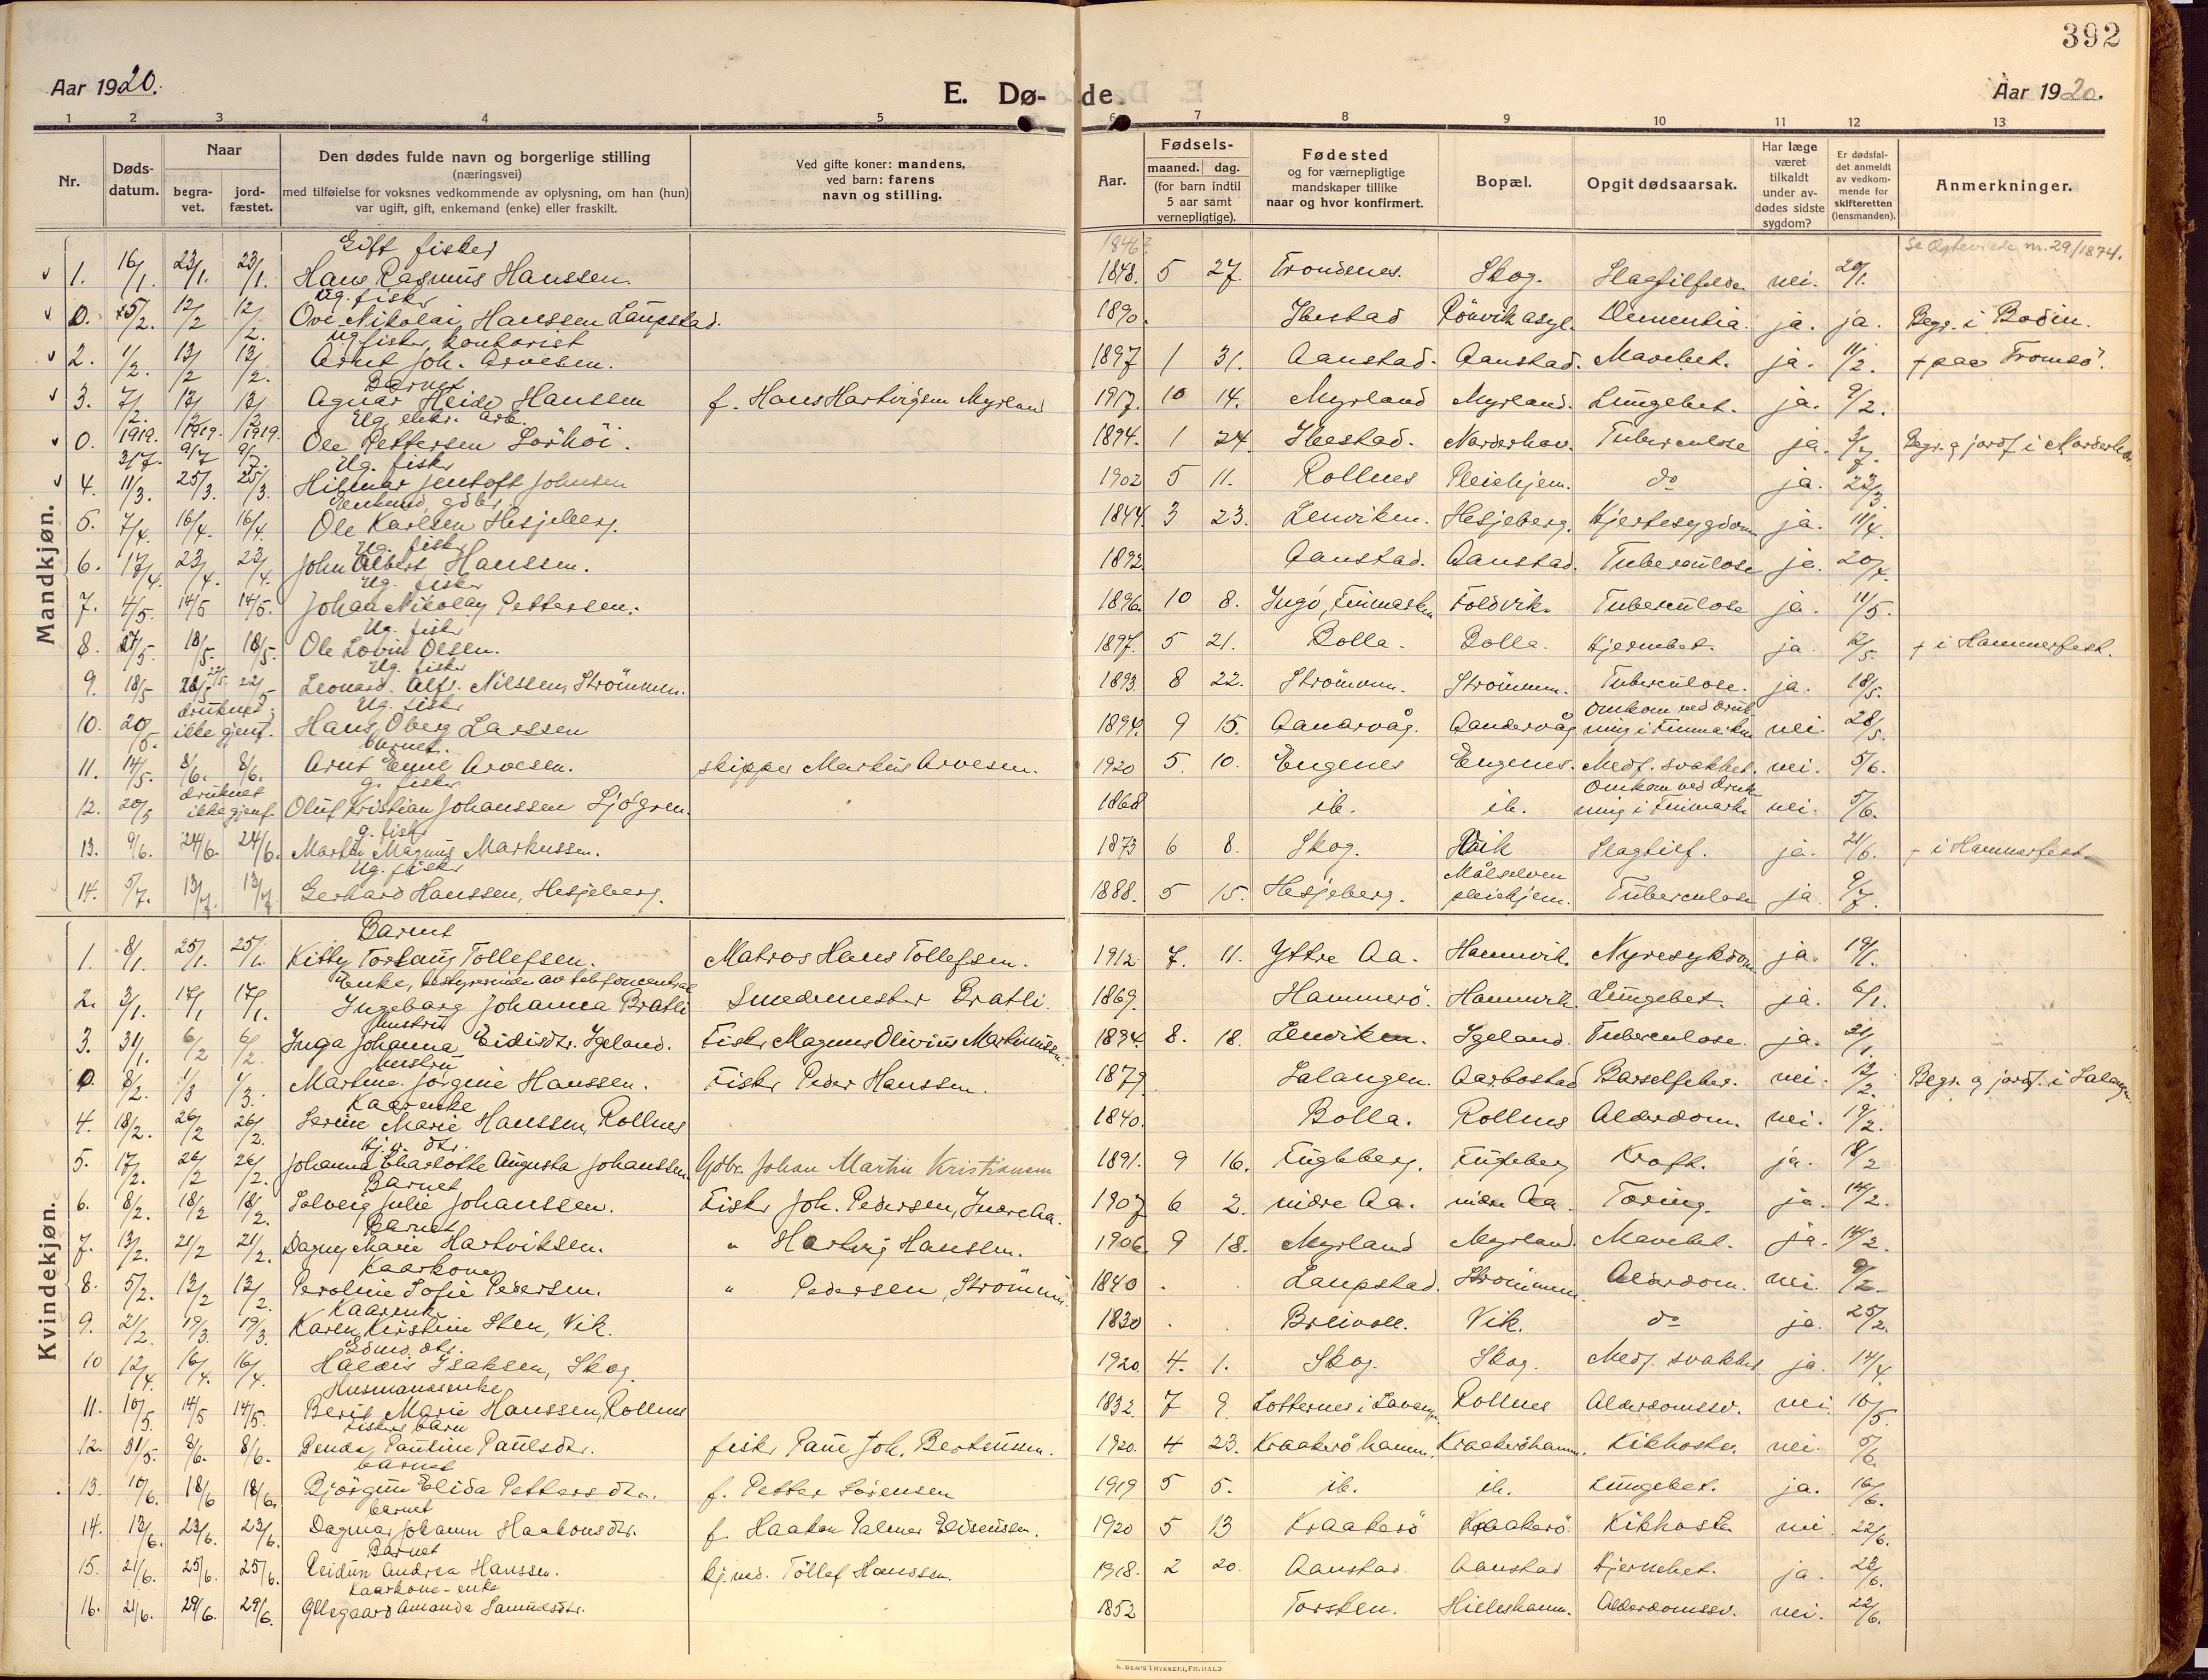 392
Aar 1920.
E. Dø- de.
Aar 1920.
1 2 3 4 5 6 7 8 9 10 11 12 13
Nr.
Døds-datum.
Naar
begra-vet.
jord-fæstet.
Den dødes fulde navn og borgerlige stilling
(næringsvei)
med tilføielse for voksnes vedkommende av oplysning, om han (hun)
var ugift, gift, enkemand (enke) eller fraskilt.
Ved gifte koner: mandens,
ved barn: farens
navn og stilling.
Aar.
Fødsels-
maaned. dag.
(for barn indtil
5 aar samt
vernepligtige).
Fødested
og for værnepligtige
mandskaper tillike
naar og hvor konfirmert.
Bopæl.
Opgit dødsaarsak.
Har læge
været
tilkaldt
under av-
dødes sidste
sygdom?
Er dødsfal-
det anmeldt
av vedkom-
mende for
skifteretten
(lensmanden).
Anmerkninger.
Mandkjøn.
Gift fisker 1846? nr. 29/1874.
1. 16/1. 23/1. 23/1. Hans Rasmus Hanssen. 1848. 5 27. Trondenes. Skog. Slagtilfelde nei. 20/1.
Ug. fisker
0. 25/2. 12/2 12/2. Ove Nikolai Hanssen Laupstad. 1890. Ibestad Rönvik asyl. Dementia. ja. ja. Begr. i Bodin.
Ug fisker, kontorist
2. 1/2. 13/2 13/2. Arnt Joh. Arvesen. 1897 1 31. Aanstad. Aanstad. Mavebet. ja. 11/2. + paa Tromsö.
Barnet
3. 7/2. 13/2 13/2 Agnar Heido Hanssen f. Hans Hartvigsen Myrland 1917. 10 14. Myrland Myrland. Lungebet. ja. 9/2.
Ug. elektr. arb.
0. 1919. 3/7. 1919. 9/7 1919. 9/7. Ole Pettersen Sörhöi. 1894. 1 24. Ibestad. Norderhov. Tuberculose ja. 3/7. Begr. g jordf i Norderhov.
Ug. fisker
4. 11/3. 25/3. 25/3. Hilmar Jentoft Johnsen 1902 5 11. Rollnes Pleiehjem. do ja. 22/3.
Enkemd, gdbr.
5. 7/4. 16/4. 16/4. Ole Karlsen Hesjeberg. 1844. 3 23. Lenviken. Hesjeberg. Hjertesygdom ja. 11/4.
Ug. fisker
6. 17/4. 23/4. 23/4. John Albert Hanssen. 1892. Aanstad. Aanstad. Tuberculose ja. 20/4.
Ug. fisker
7. 4/5. 14/5 14/5. Johan Nikolay Pettersen. 1896. 10 8. Ingö, Finmarken Foldvik. Tuberculose ja. 11/5.
Ug. fisker
8. 27/5. 18/5. 18/5. Ole Lovin Olsen. 1897. 5 21. Bolla. Bolla. Hjernebet. ja. 12/5. + i Hammerfest.
Ug. fisker
9. 18/5 22/5 22/5 Leonard. Alfr. Nilssen, Strömmen. 1893. 8 22. Strömmen. Strömmen. Tuberculose. ja. 18/5.
druknet; Ug. fisker Omkom ved druk-
10. 20/5. ikke gjenf. Hans Oberg Larssen 1894. 9 15. Aanarvåg. Aandervåg ning i Finmarken nei. 28/5.
barnet.
11. 14/5. 8/6. 8/6. Arnt Emil Arvesen. skipper Markus Arvesen. 1920 5. 10. Engenes Engenes. Medf. svakhet. nei. 5/6.
druknet g. fisker Omkom ved druk-
12. 20/5 ikke gjenf. Oluf Kristian Johanssen Sjögren. 1868 ib. ib. ning i Finmarken nei. 5/6.
g. fisk
13. 9/6. 24/6. 24/6. Martin Magnus Markussen. 1873 6 8. Skog. Vik Slagtilf. ja. 21/6. + i Hammerfest.
Ug. fisker Målselven
14. 5/7. 13/7. 13/7 Gerhard Hanssen, Hesjeberg. 1888. 5 15. Hesjeberg. pleiehjem. Tuberculose ja 9/7.
Kvindekjøn.
Barnet
1. 8/1. 25/1. 25/1. Kitty Torlaug Tollefsen. Matros Hans Tollefsen. 1912 7. 11. Yttre Aa. Hamnvik. Nyresykdom ja. 19/1.
Enke, bestyrerinde av telefoncentral
2. 3/1. 17/1 17/1. Ingeborg Johanna Bratli Smedemester Bratli. 1869. Hammerö. Hamnvik. Lungebet. ja. 6/1.
hustru
3. 31/1. 6/2 6/2. Inga Johanna Eidisdtr. Igeland. Fisker Magnus Olivius Martinussen. 1894. 8. 18. Lenviken. Igeland. Tuberculose. ja. 21/1.
hustru
0. 8/2. 1/3 1/3. Martine Jörgine Hanssen. Fisker Peder Hanssen. 1879. Salangen. Aarbostad Barselfeber. nei. 12/2. Begr. g jordf. i Salangen.
Kaarenke
4. 18/2. 26/2 26/2. Serine Marie Hanssen, Rollnes 1840. Bolla. Rollnes Alderdom. nei. 19/2.
Hj.v. dtr.
5. 17/2. 26/2 26/2. Johanna Charlotte Augusta Johanssen Gdbr. Johan Martin Kristiansen 1891. 9 16. Fugleberg. Fugleberg Kræft. ja. 18/2
Barnet
6. 8/2. 18/2 18/2. Solveig Julie Johanssen. Fisker Joh. Pedersen, Indre Aa. 1907 6 2. indre Aa. indre Aa. Tæring. ja. 14/2.
Barnet
7. 13/2. 21/2 21/2. Dagny Marie Hartviksen. " Hartvig Hanssen. 1906. 9 18. Myrland Myrland. Mavebet. ja. 14/2.
Kaarkone
8. 5/2. 12/2 12/2. Peroline Sofie Pedersen. " Pedersen, Strömmen. 1840. Laupstad. Strömmen. Alderdom. nei. 9/2.
Kaarenke
9. 21/2. 19/3. 19/3. Karen Kirstine Sten, Vik. 1830 Breivoll. Vik. do ja. 25/2.
10 12/4. 16/4. 16/4. Haldis Isaksen, Skog. 1920 4. 1. Skog. Skog. Medf. svakhet ja. 14/4.
Husmannsenke
11. 10/5 14/5 14/5. Berit Marie Hanssen, Rollnes 1832. 7 9. Lotternes i Lavangen Rollnes Alderdomssv. nei. 10/5.
Fiskers barn
12. 31/5. 8/6. 8/6. Penda Pauline Paulsdtr. fisker Paul Joh. Berteussen. 1920. 4 23. Kraakröhamn. Kraakeröhamn. Kikhoste. nei. 5/6.
barnet
13. 10/6. 18/6 18/6. Björgun Elida Pettersdtr. f. Petter Sörensen 1919 5 5. ib. ib. Lungebet. ja. 16/6.
barnet
14. 13/6. 23/6. 23/6. Dagmar Johann Haakonsdtr. f. Haakon Palmer Edisenssen. 1920 5 13 Kraakerö Kraakerö Kikhoste nei 22/6.
Barnet
15. 21/6. 25/6. 25/6. Reidun Andrea Hanssen. Tollef Hanssen. 1918. 2 20. Aanstad. Aanstad Hjernebet. ja. 23/6.
Kaarkone - enke
16. 21/6. 29/6. 29/6. Gllegaard Amanda Samuelsdtr. 1852 Torsken. Hilleshamn. Alderdomssv. nei. 22/6.